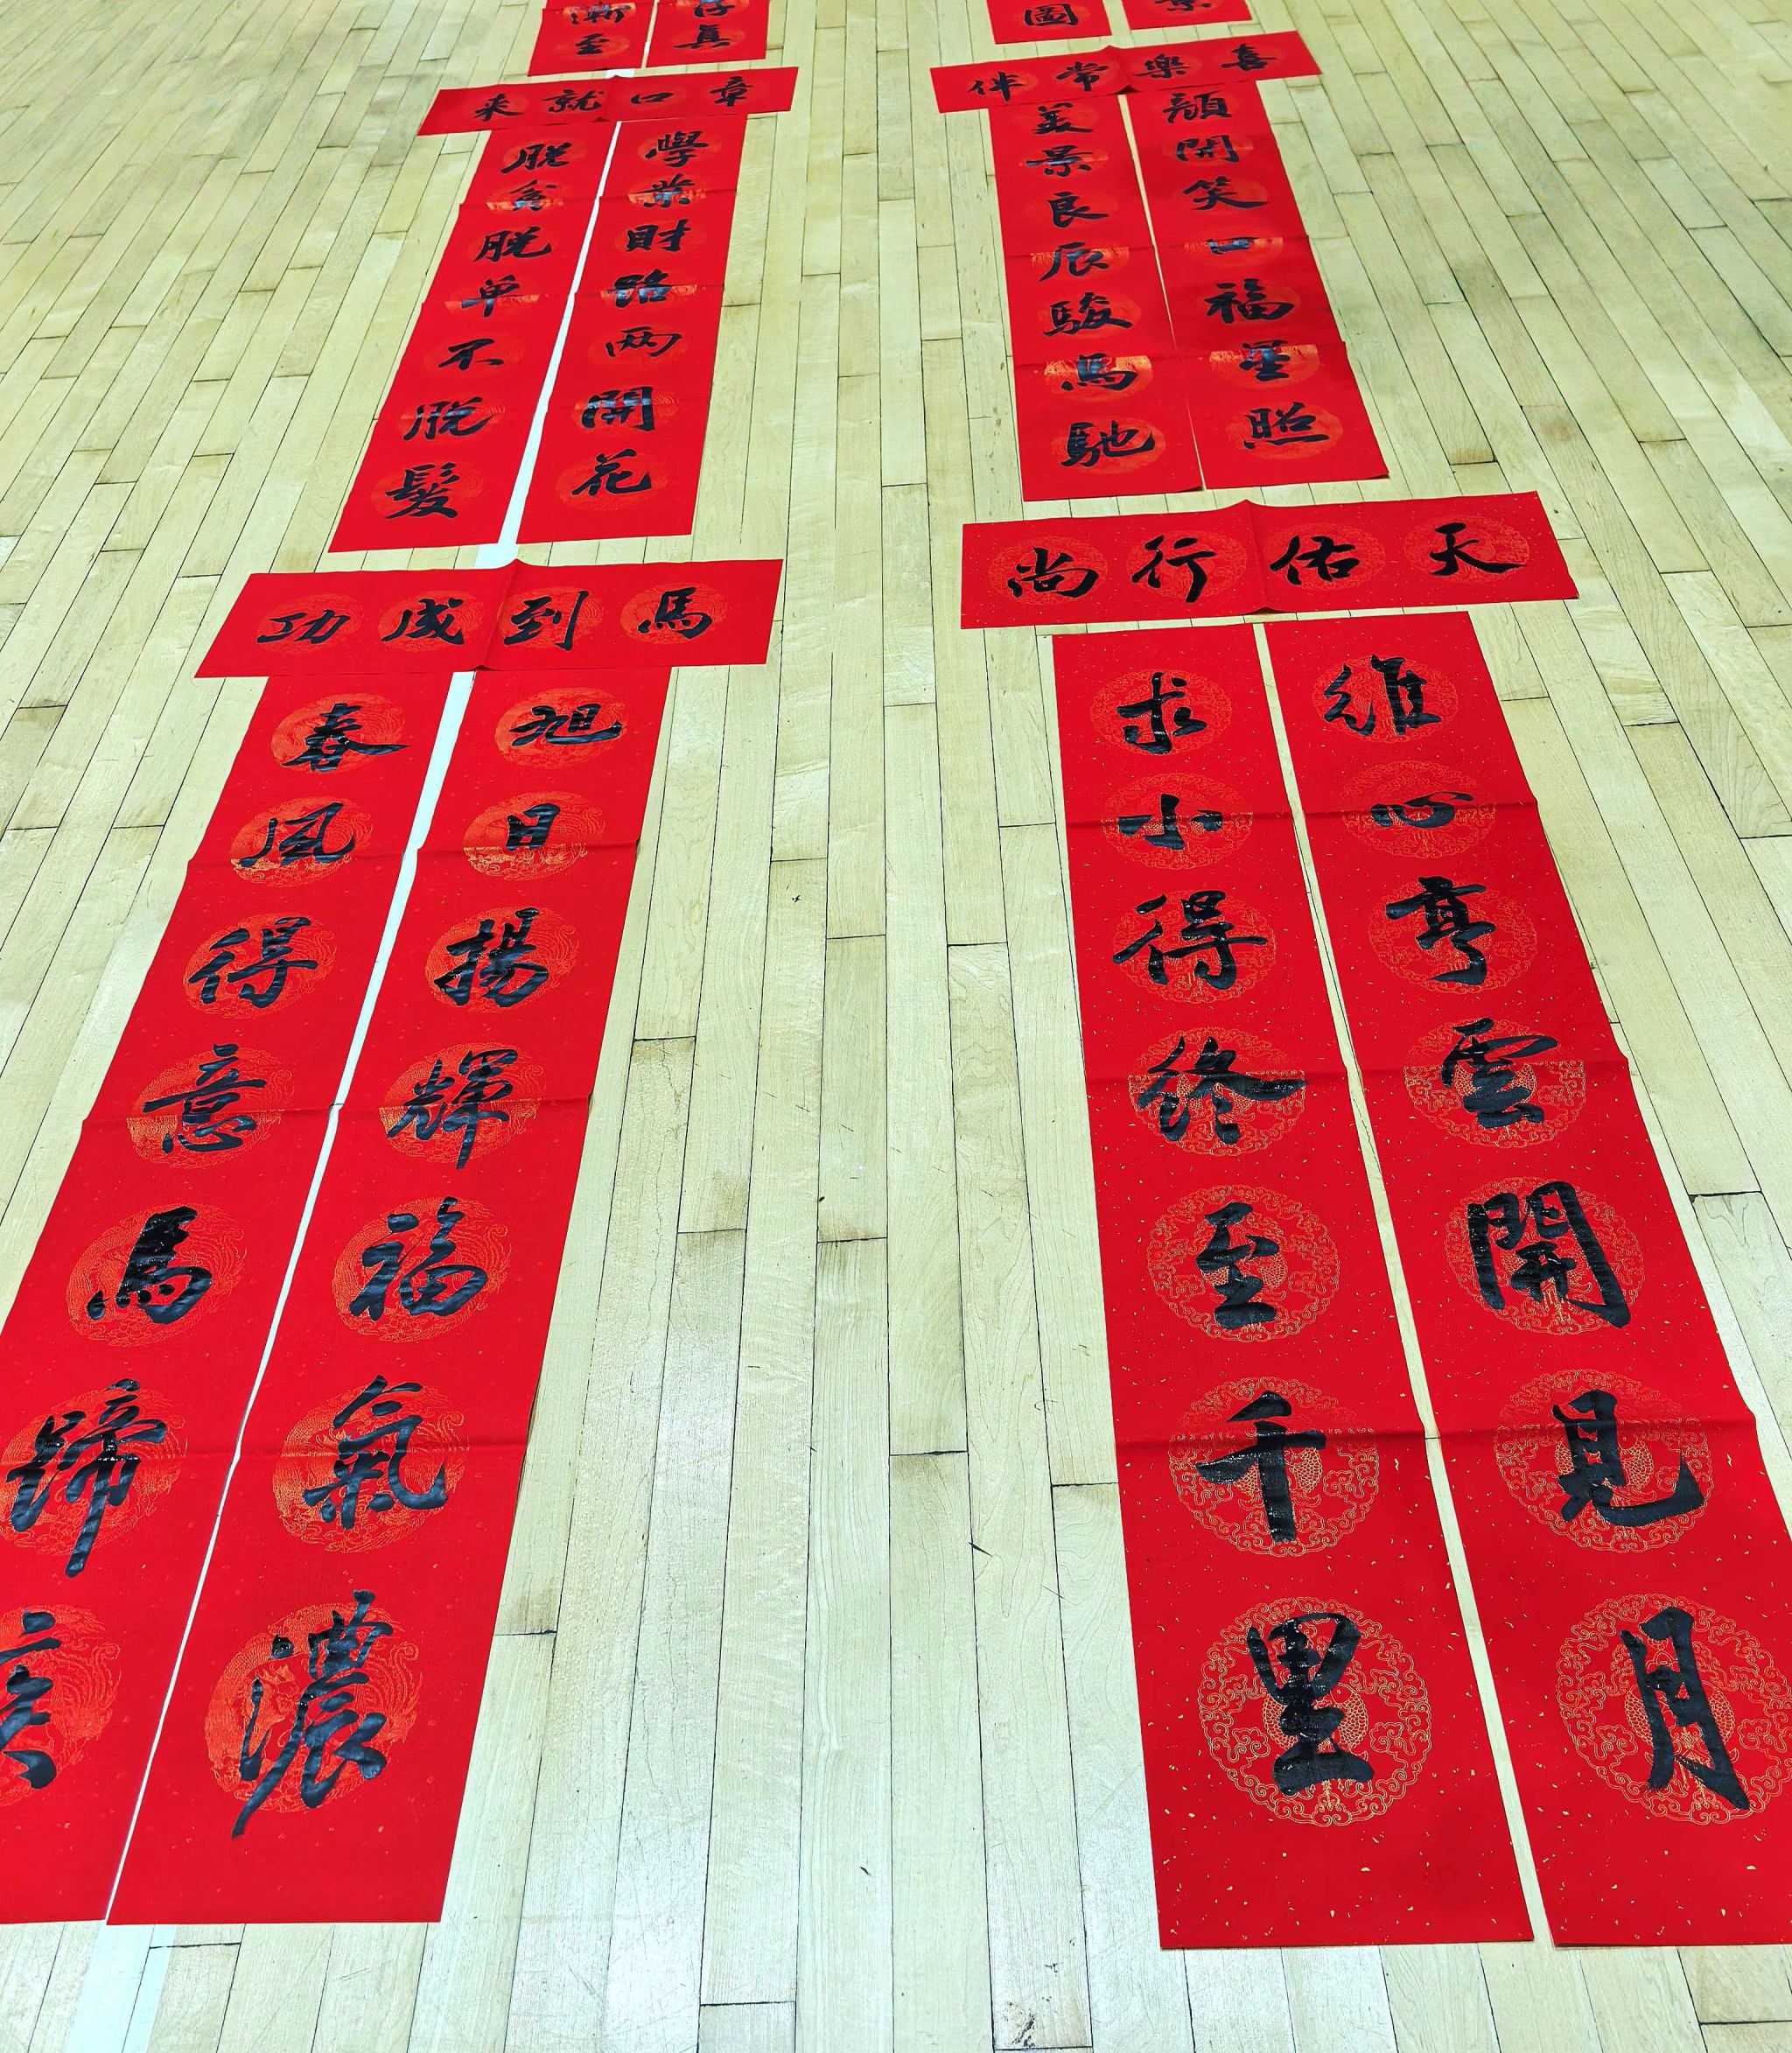 圖
真
漸至
喜樂常伴
顏開笑口福星照
美景良辰駿馬馳
章口就来
學業財路两開花
脱貧脱单不脱髮
天佑行尚
維心亨雲開見月
求小得終至千里
馬到成功
旭日揚輝福氣濃
春風得意馬蹄